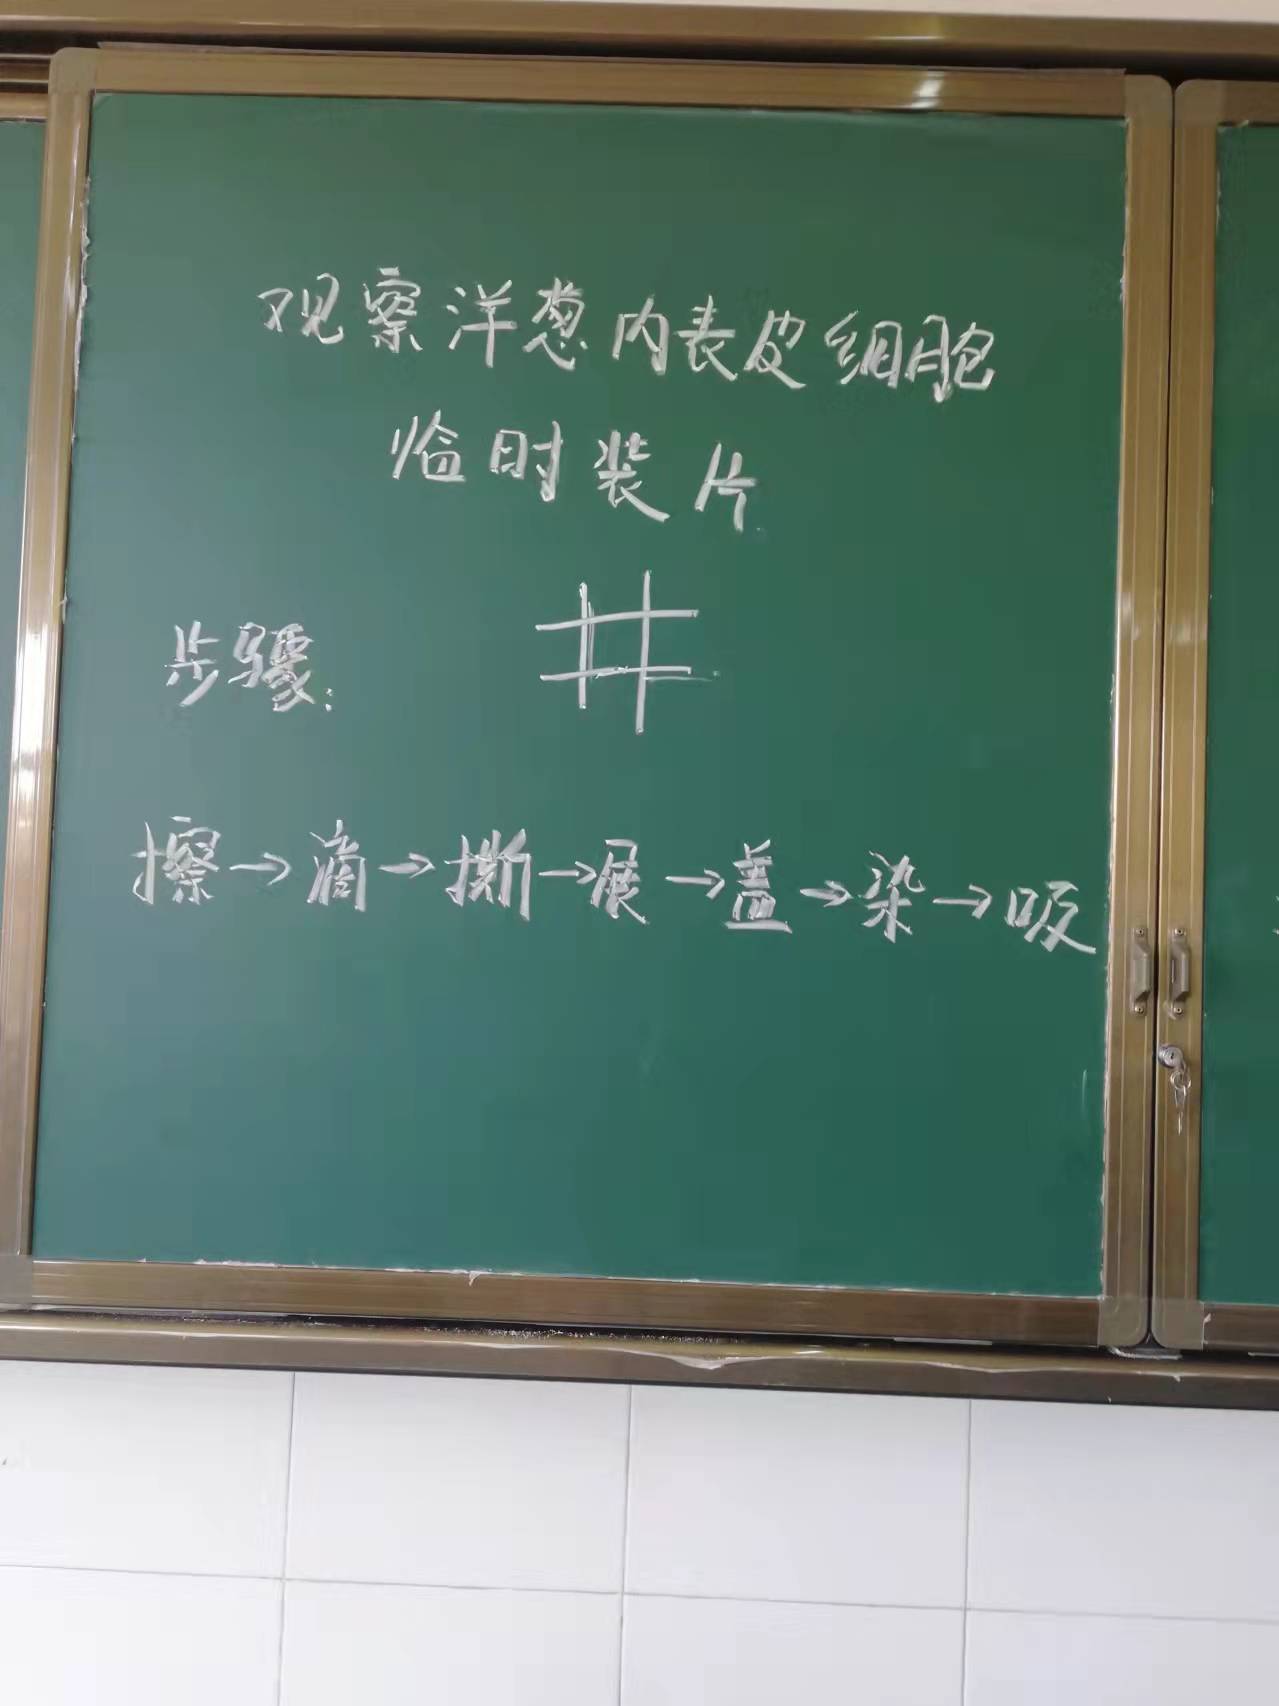 观察洋葱内表皮细胞
临时装片
步骤:
擦→滴→撕→展→盖→染→吸